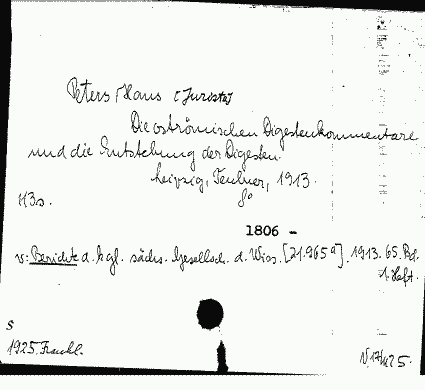 Peters Hans [Jurista]
Die oströmischen Digestenkommentare
und die Entstehung der Digesten.
Leipzig, Teubner, 1913.
113s. 8°
1806 -
v: Berichte d. kgl. sächs. Gesellsch. d. Wiss. [21.965 a]. 1913. 65. Bd.
1. Heft.
S
1925. Frankl.